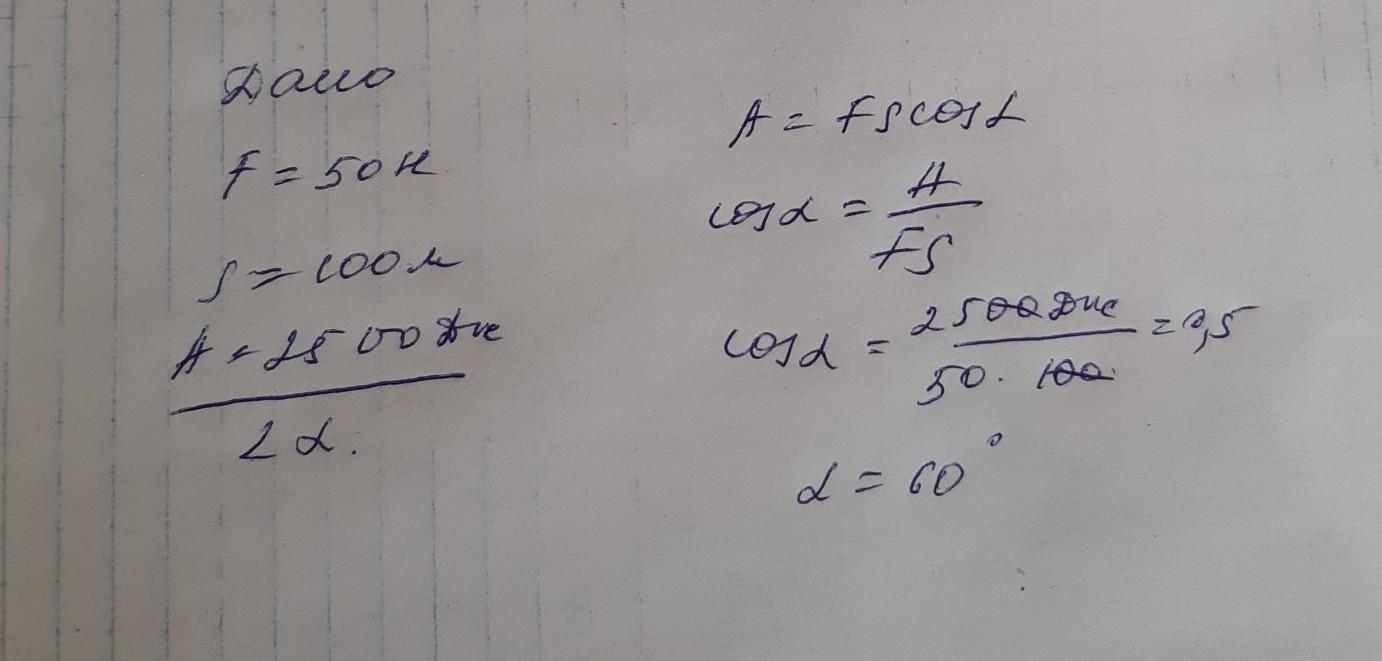 Дано
F = 50 Н
S = 100 м
A = 2500 Дж
∠ α.
A = F S cos α
cos α = A / FS
cos α = 2500 Дж / 50 · 100 = 0,5
α = 60°